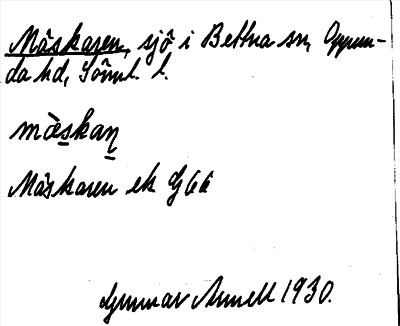 Måskaren, sjö i Bettna sn, Oppun-
da hd, Söml. l.
mὰskaṇ
Måskaren ek G66
Gunnar Annell 1930.